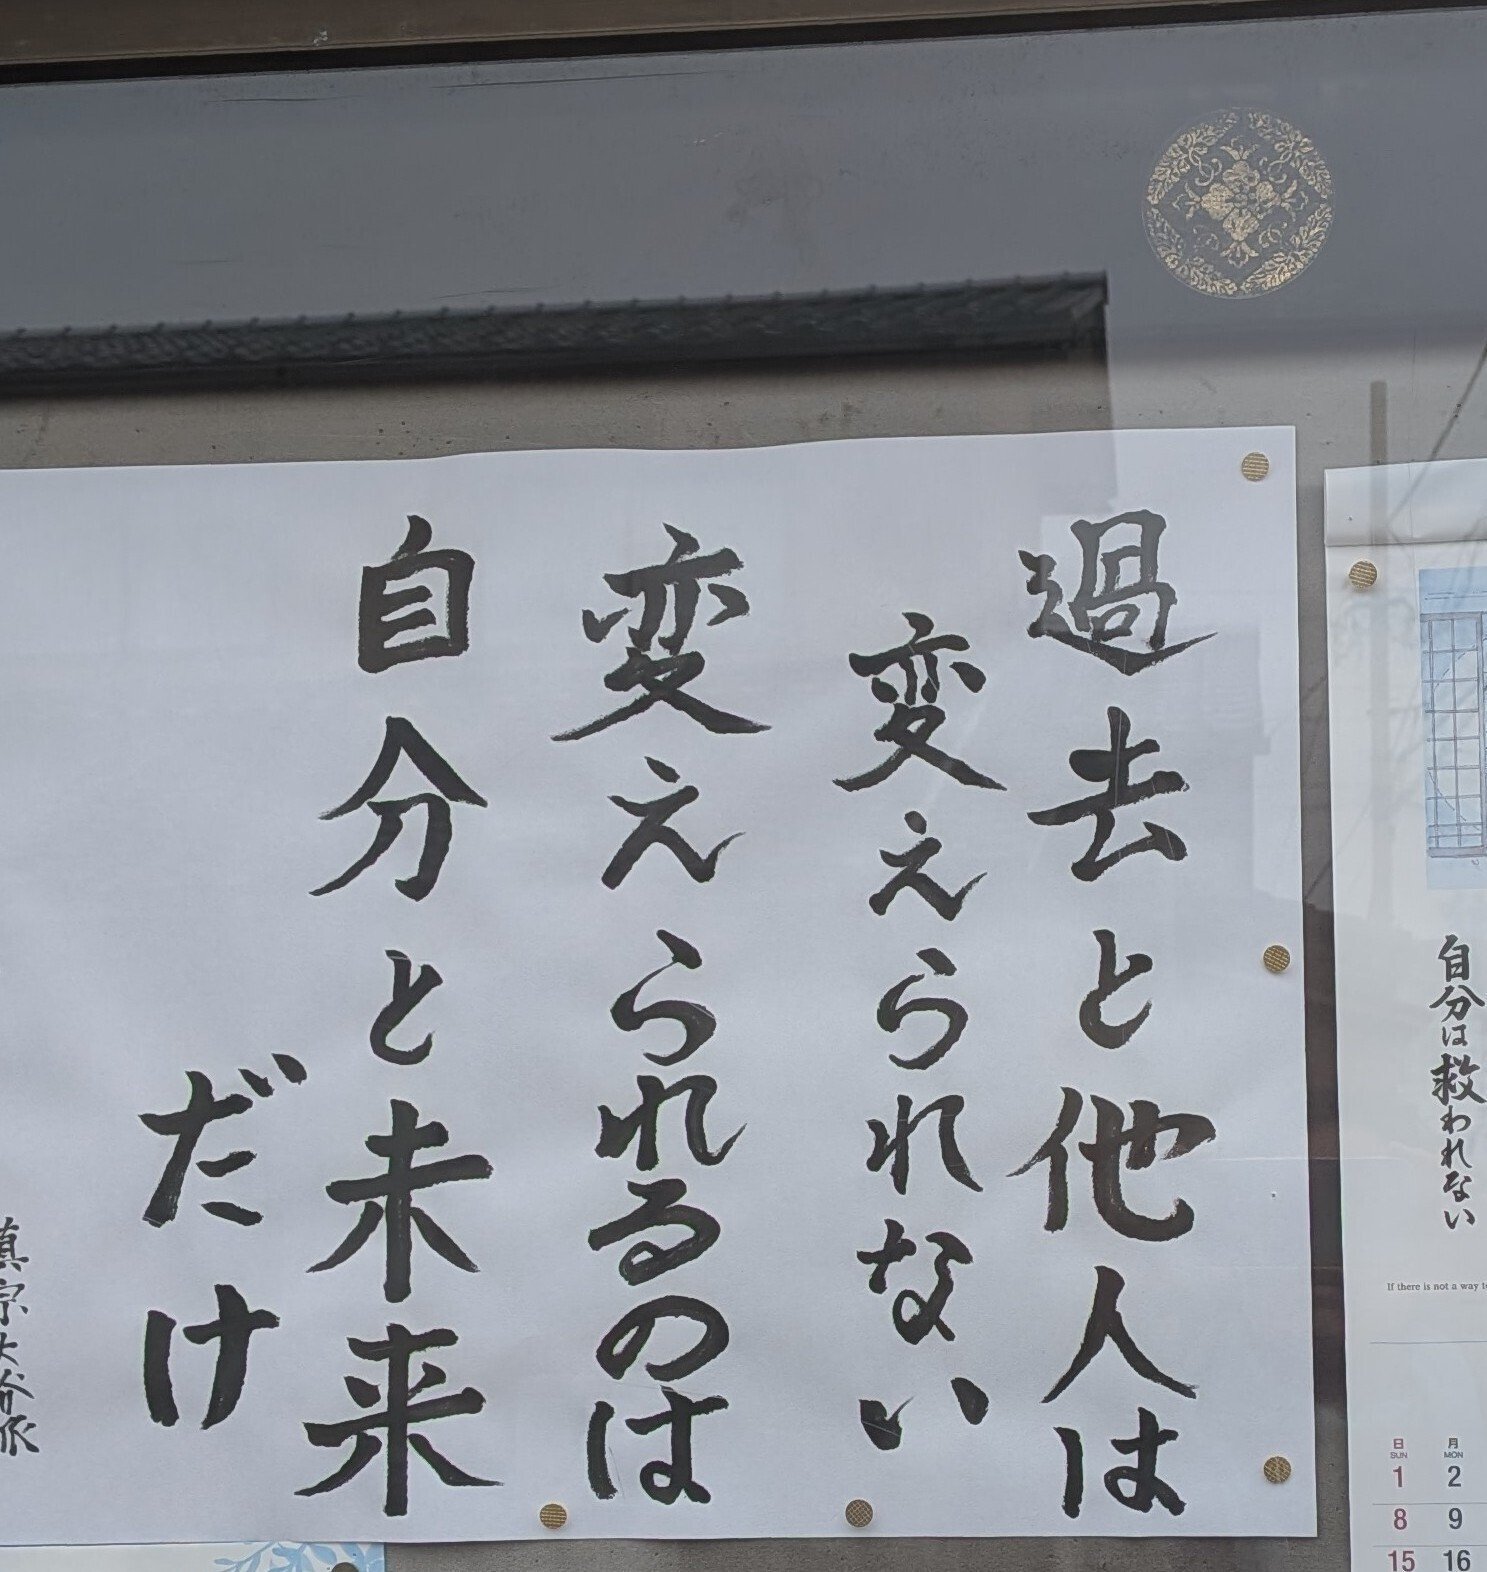 過去と他人は
変えられない
変えられるのは
自分と未来
だけ
真宗大谷派
自分は救われない
If there is not a way
日 月
SUN MON
1 2
8 9
15 16